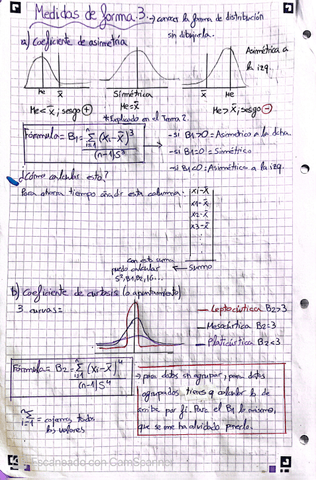 Medidas de forma. 3. → conocer la forma de distribución
sin dibujarla.
a) Coeficiente de asimetría
Asimétrica a
la izq.
Me x̄
Simétrica
x̄ Me
Me < x̄; sesgo ⊕
Me = x̄
Me > x̄; sesgo ⊖
* Explicado en el Tema 2.
Fórmula = B₁ = Σ (xᵢ - x̄)³
i=1
(n-1)S³
- si B₁>0 = Asimétrico a la dcha.
- si B₁=0 = Simétrico
- si B₁<0 = Asimétrico a la izq.
¿Cómo calcular esto?
Para ahorrar tiempo añadir esta columna:
xi - x̄
x1 - x̄
x2 - x̄
x3 - x̄
con esta suma
puedo calcular
← Sumo
b) Coeficiente de curtosis (o apuntamiento)
3 curvas:
Leptocúrtica B2>3
Mesocúrtica B2=3
Platicúrtica B2<3
Fórmula = B₂ = Σ (xᵢ - x̄)⁴
i=1
(n-1)S⁴
→ para datos sin agrupar, para datos
agrupados tienes q calcular lo de
arriba por fi. Para el B₁ lo mismo,
que se me ha olvidado ponerlo.
Σ
i=1 = cogemos todos
los valores
Escaneado con CamScanner